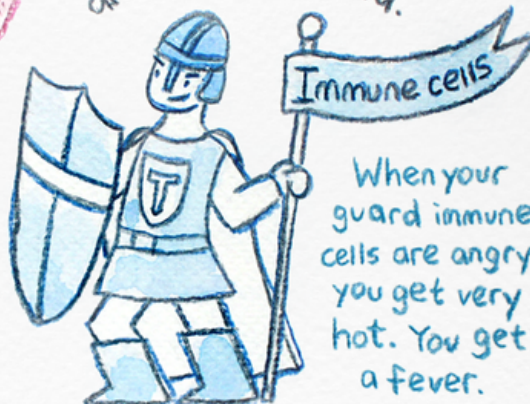 Immune cells
T
When your
guard immune
cells are angry
you get very
hot. You get
a fever.